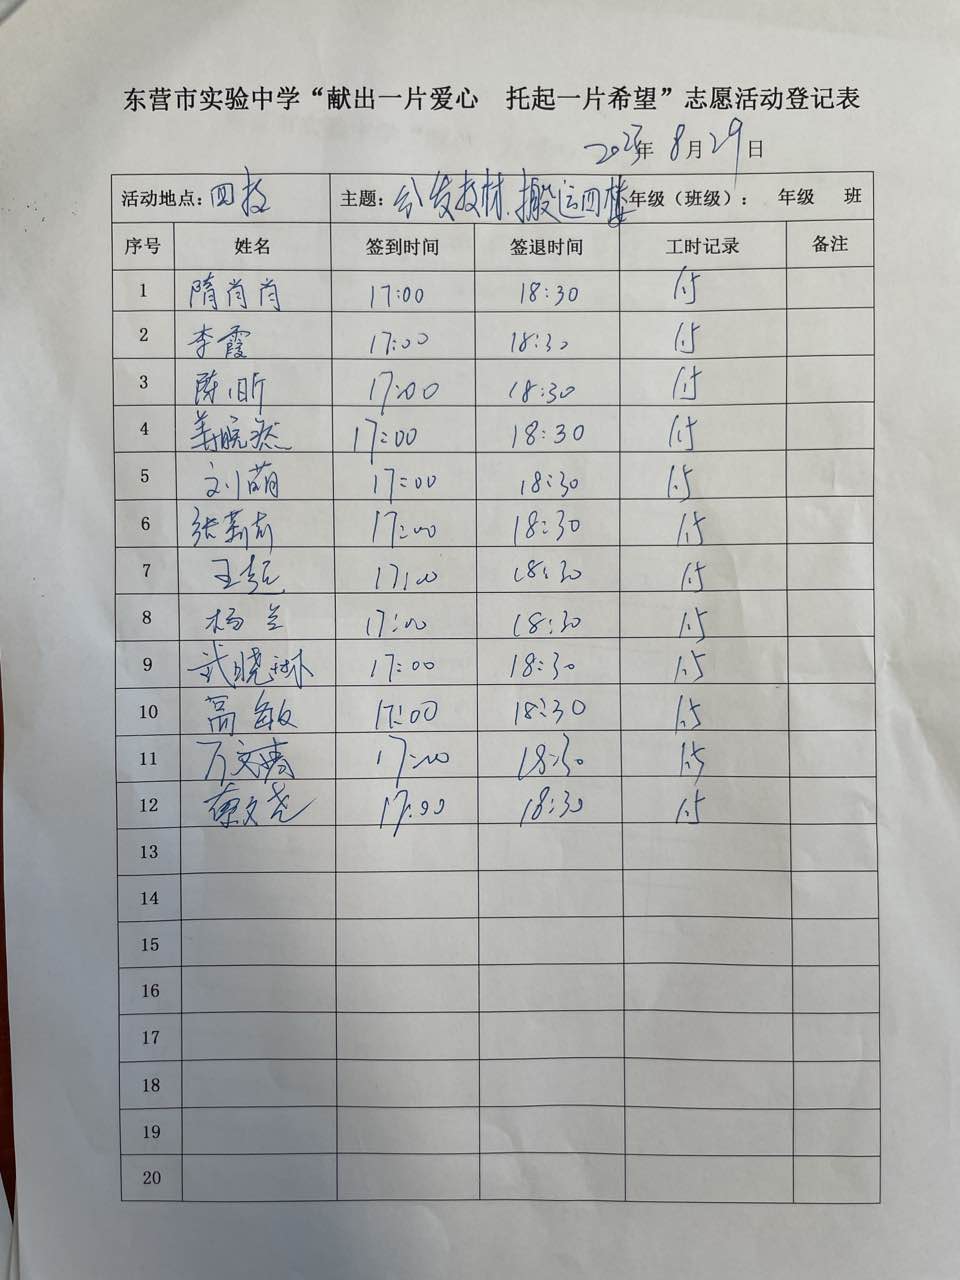 东营市实验中学“献出一片爱心 托起一片希望”志愿活动登记表
年 8月29日
活动地点: 四校 主题: 分发教材、搬运四楼 年级（班级）： 年级 班
序号 姓名 签到时间 签退时间 工时记录 备注
1 隋肖肖 17:00 18:30 1.5
2 李霞 17:00 18:30 1.5
3 陈昕 17:00 18:30 1.5
4 姜晓燕 17:00 18:30 1.5
5 刘萌 17:00 18:30 1.5
6 张莉莉 17:00 18:30 1.5
7 王超 17:00 18:30 1.5
8 杨兰 17:00 18:30 1.5
9 武晓琳 17:00 18:30 1.5
10 高敏 17:00 18:30 1.5
11 万文涛 17:00 18:30 1.5
12 17:00 18:30 1.5
13
14
15
16
17
18
19
20